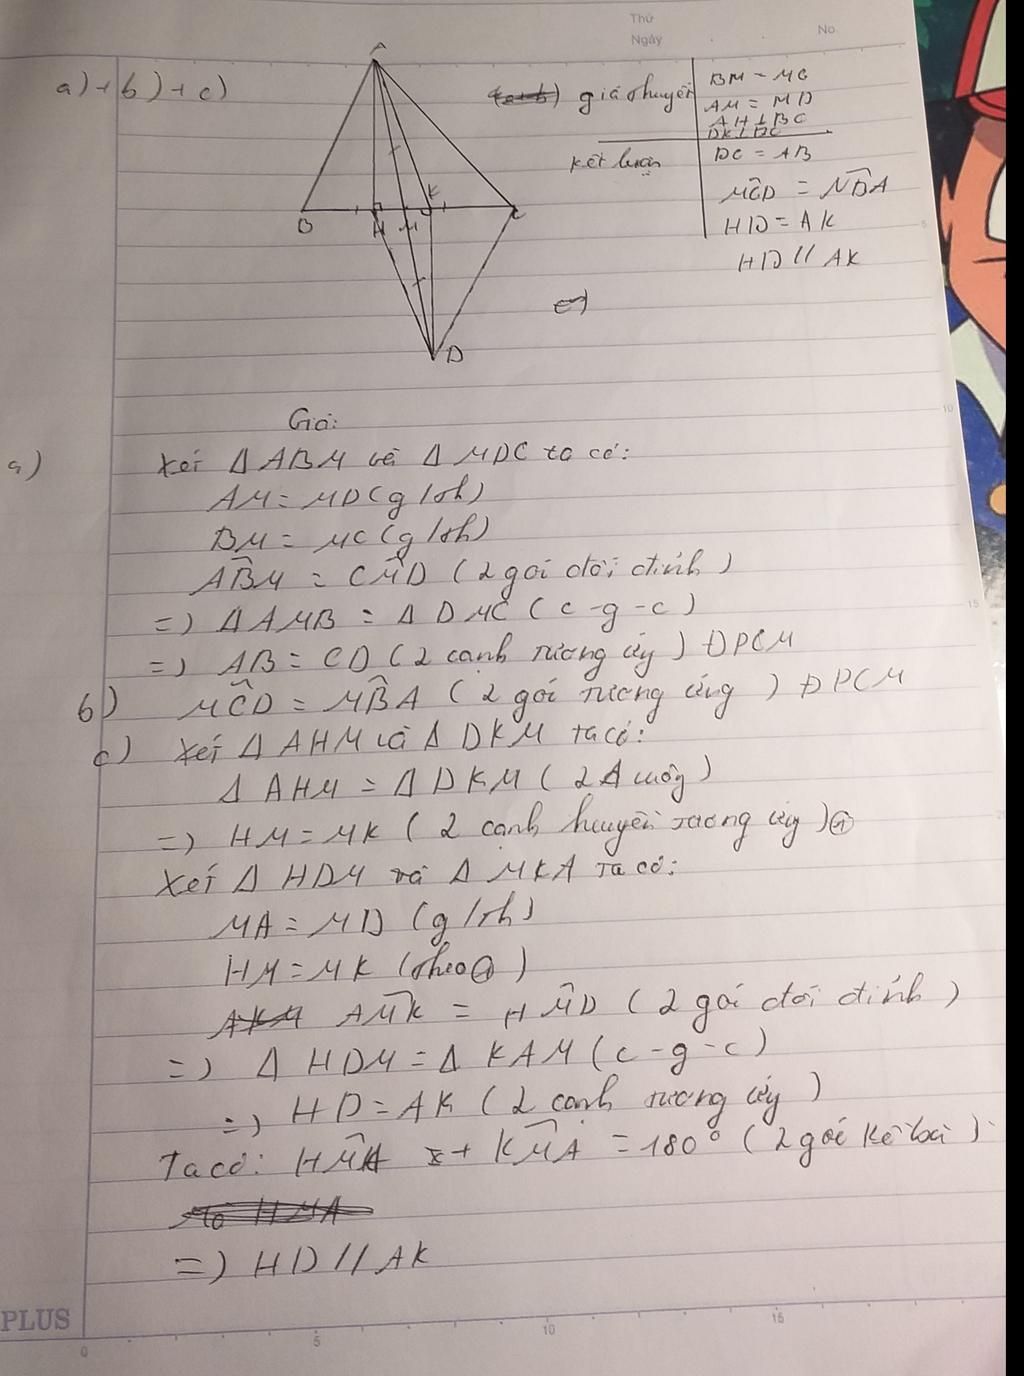 Thứ
Ngày
No.
a)+b)+c)
giả thuyết
BM = MC
AM = MD
AH⊥BC
DK⊥BC
kết luận
DC = AB
HD = AK
HD // AK
A
B
H
M
K
C
D
Giải:
a)
Xét Δ ABM và Δ MDC ta có:
AM = MD (g/th)
BM = MC (g/th)
ABM = CMD (2 gói đối đỉnh)
=) Δ AMB = Δ DMC (c-g-c)
=) AB = CD (2 cạnh tương ứng) ĐPCM
b) MCD = MBA (2 gói tương ứng) ĐPCM
c) Xét Δ AHM và Δ DKM ta có:
Δ AHM = Δ DKM (2 Δ vuông)
=) HM = MK (2 cạnh huyền tương ứng)
Xét Δ HDM và Δ MKA ta có:
MA = MD (g/th)
HM = MK (theo)
AMK = HMD (2 gói đối đỉnh)
=) Δ HDM = Δ KAM (c-g-c)
=) HD = AK (2 cạnh tương ứng)
Ta có: + KMA = 180° (2 gói kề bù)
=) HD // AK
PLUS
0
5
10
15
5
10
15